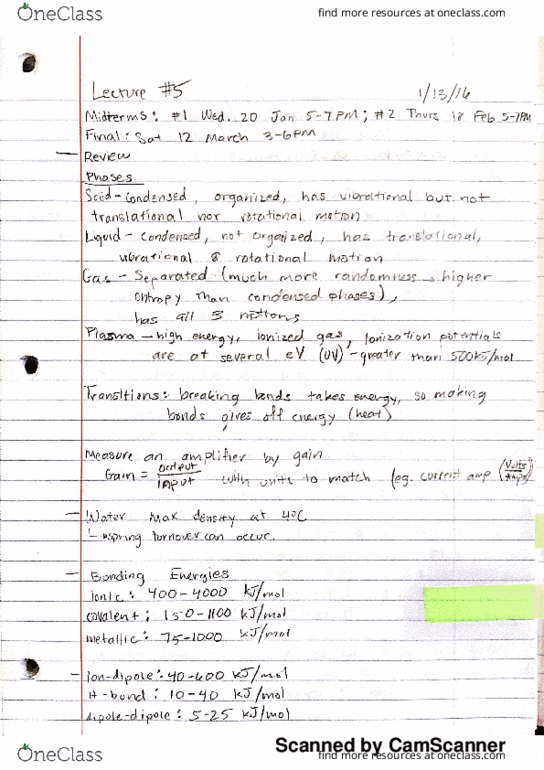 OneClass
find more resources at oneclass.com
Lecture #5 1/13/16
Midterms: #1 Wed. 20 Jan 5-7PM; #2 Thurs 18 Feb 5-7PM
Final: Sat 12 March 3-6PM
— Review
Phases
Solid - condensed, organized, has vibrational but not
translational nor rotational motion
Liquid - condensed, not organized, has translational,
vibrational & rotational motion
Gas - Separated (much more randomness → higher
entropy than condensed phases),
has all 3 motions
Plasma - high energy, ionized gas, Ionization potentials
are at several eV (UV) - greater than 500kJ/mol
Transitions: breaking bonds takes energy, so making
bonds gives off energy (heat)
Measure an amplifier by gain
Gain = output/input with units to match (eg. current amp (Volts/Amps))
— Water max density at 4°C
└ spring turnover can occur.
— Bonding Energies
ionic: 400-4000 kJ/mol
covalent: 150-1100 kJ/mol
metallic: 75-1000 kJ/mol
— Ion-dipole: 40-600 kJ/mol
H-bond: 10-40 kJ/mol
dipole-dipole: 5-25 kJ/mol
Scanned by CamScanner
OneClass
find more resources at oneclass.com